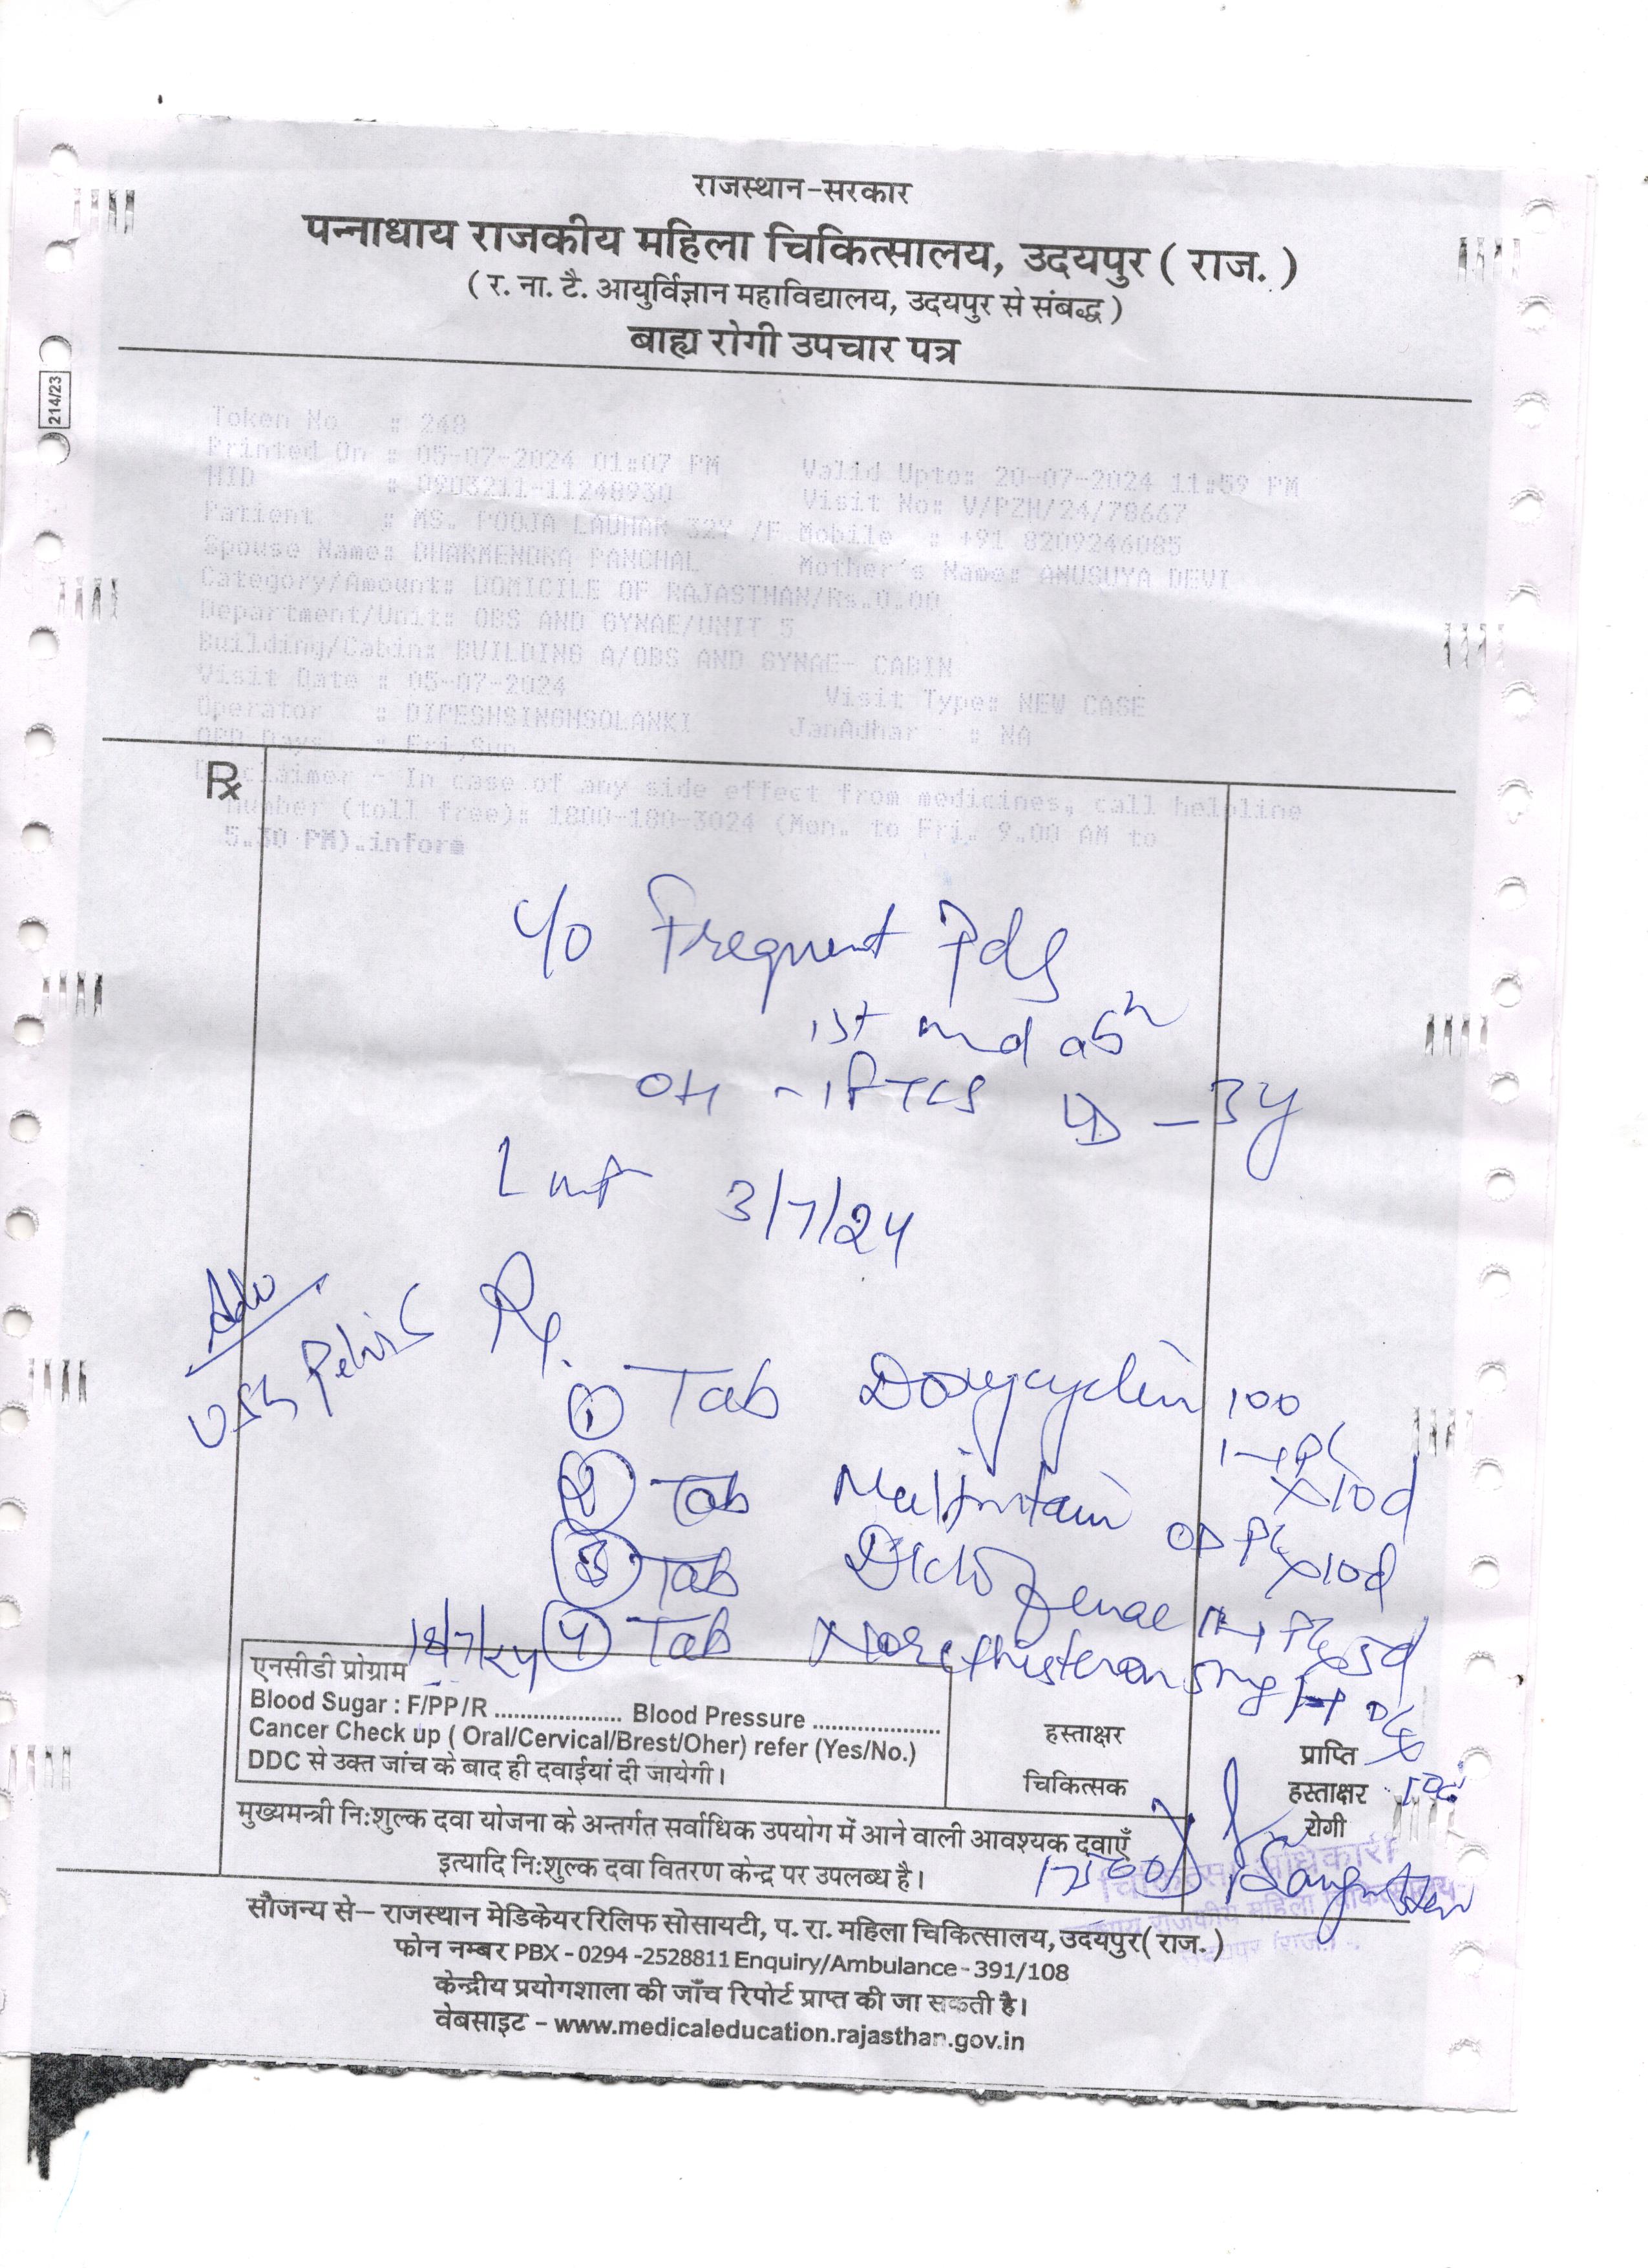 राजस्थान-सरकार
पन्नाधाय राजकीय महिला चिकित्सालय, उदयपुर ( राज. )
( र. ना. टै. आयुर्विज्ञान महाविद्यालय, उदयपुर से संबद्ध )
बाह्य रोगी उपचार पत्र
214/23
Token No : 248
Printed On : 05-07-2024 01:07 PM Valid Upto: 20-07-2024 11:59 PM
HID : 0903211-11248930 Visit No: V/PZH/24/78667
Patient : MS. POOJA LAUHAR 32Y /F Mobile : +91 8209246085
Spouse Name: DHARMENDRA PANCHAL Mother's Name: ANUSUYA DEVI
Category/Amount: DOMICILE OF RAJASTHAN/Rs.0.00
Department/Unit: OBS AND GYNAE/UNIT 5
Building/Cabin: BUILDING A/OBS AND GYNAE- CABIN
Visit Date : 05-07-2024 Visit Type: NEW CASE
Operator : DIPESHSINGHSOLANKI JanAdhar : NA
OPD Days : Fri,Sun
Disclaimer - In case of any side effect from medicines, call helpline
Number (toll free): 1800-180-3024 (Mon. to Fri. 9.00 AM to
5.30 PM).inform
Rx
c/o Frequent Pds
OH - 3y
LMP 3/7/24
Adv
USG Pelvis
Rx
① Tab Doxycyclin 100
x10d
② Tab Multivitamin OD PC x10d
③ Tab Diclofenac 5d
18/7/24 ④ Tab Norethisteron 5mg
एनसीडी प्रोग्राम
Blood Sugar : F/PP/R ..................... Blood Pressure .....................
Cancer Check up ( Oral/Cervical/Brest/Oher) refer (Yes/No.)
DDC से उक्त जांच के बाद ही दवाईयां दी जायेगी।
हस्ताक्षर
चिकित्सक
प्राप्ति
हस्ताक्षर
रोगी
मुख्यमन्त्री नि:शुल्क दवा योजना के अन्तर्गत सर्वाधिक उपयोग में आने वाली आवश्यक दवाएँ
इत्यादि नि:शुल्क दवा वितरण केन्द्र पर उपलब्ध है।
चिकित्सा अधिकारी
राजकीय महिला चिकित्सालय
सौजन्य से– राजस्थान मेडिकेयर रिलिफ सोसायटी, प. रा. महिला चिकित्सालय, उदयपुर( राज. )
फोन नम्बर PBX - 0294 -2528811 Enquiry/Ambulance - 391/108
केन्द्रीय प्रयोगशाला की जाँच रिपोर्ट प्राप्त की जा सकती है।
वेबसाइट – www.medicaleducation.rajasthan.gov.in